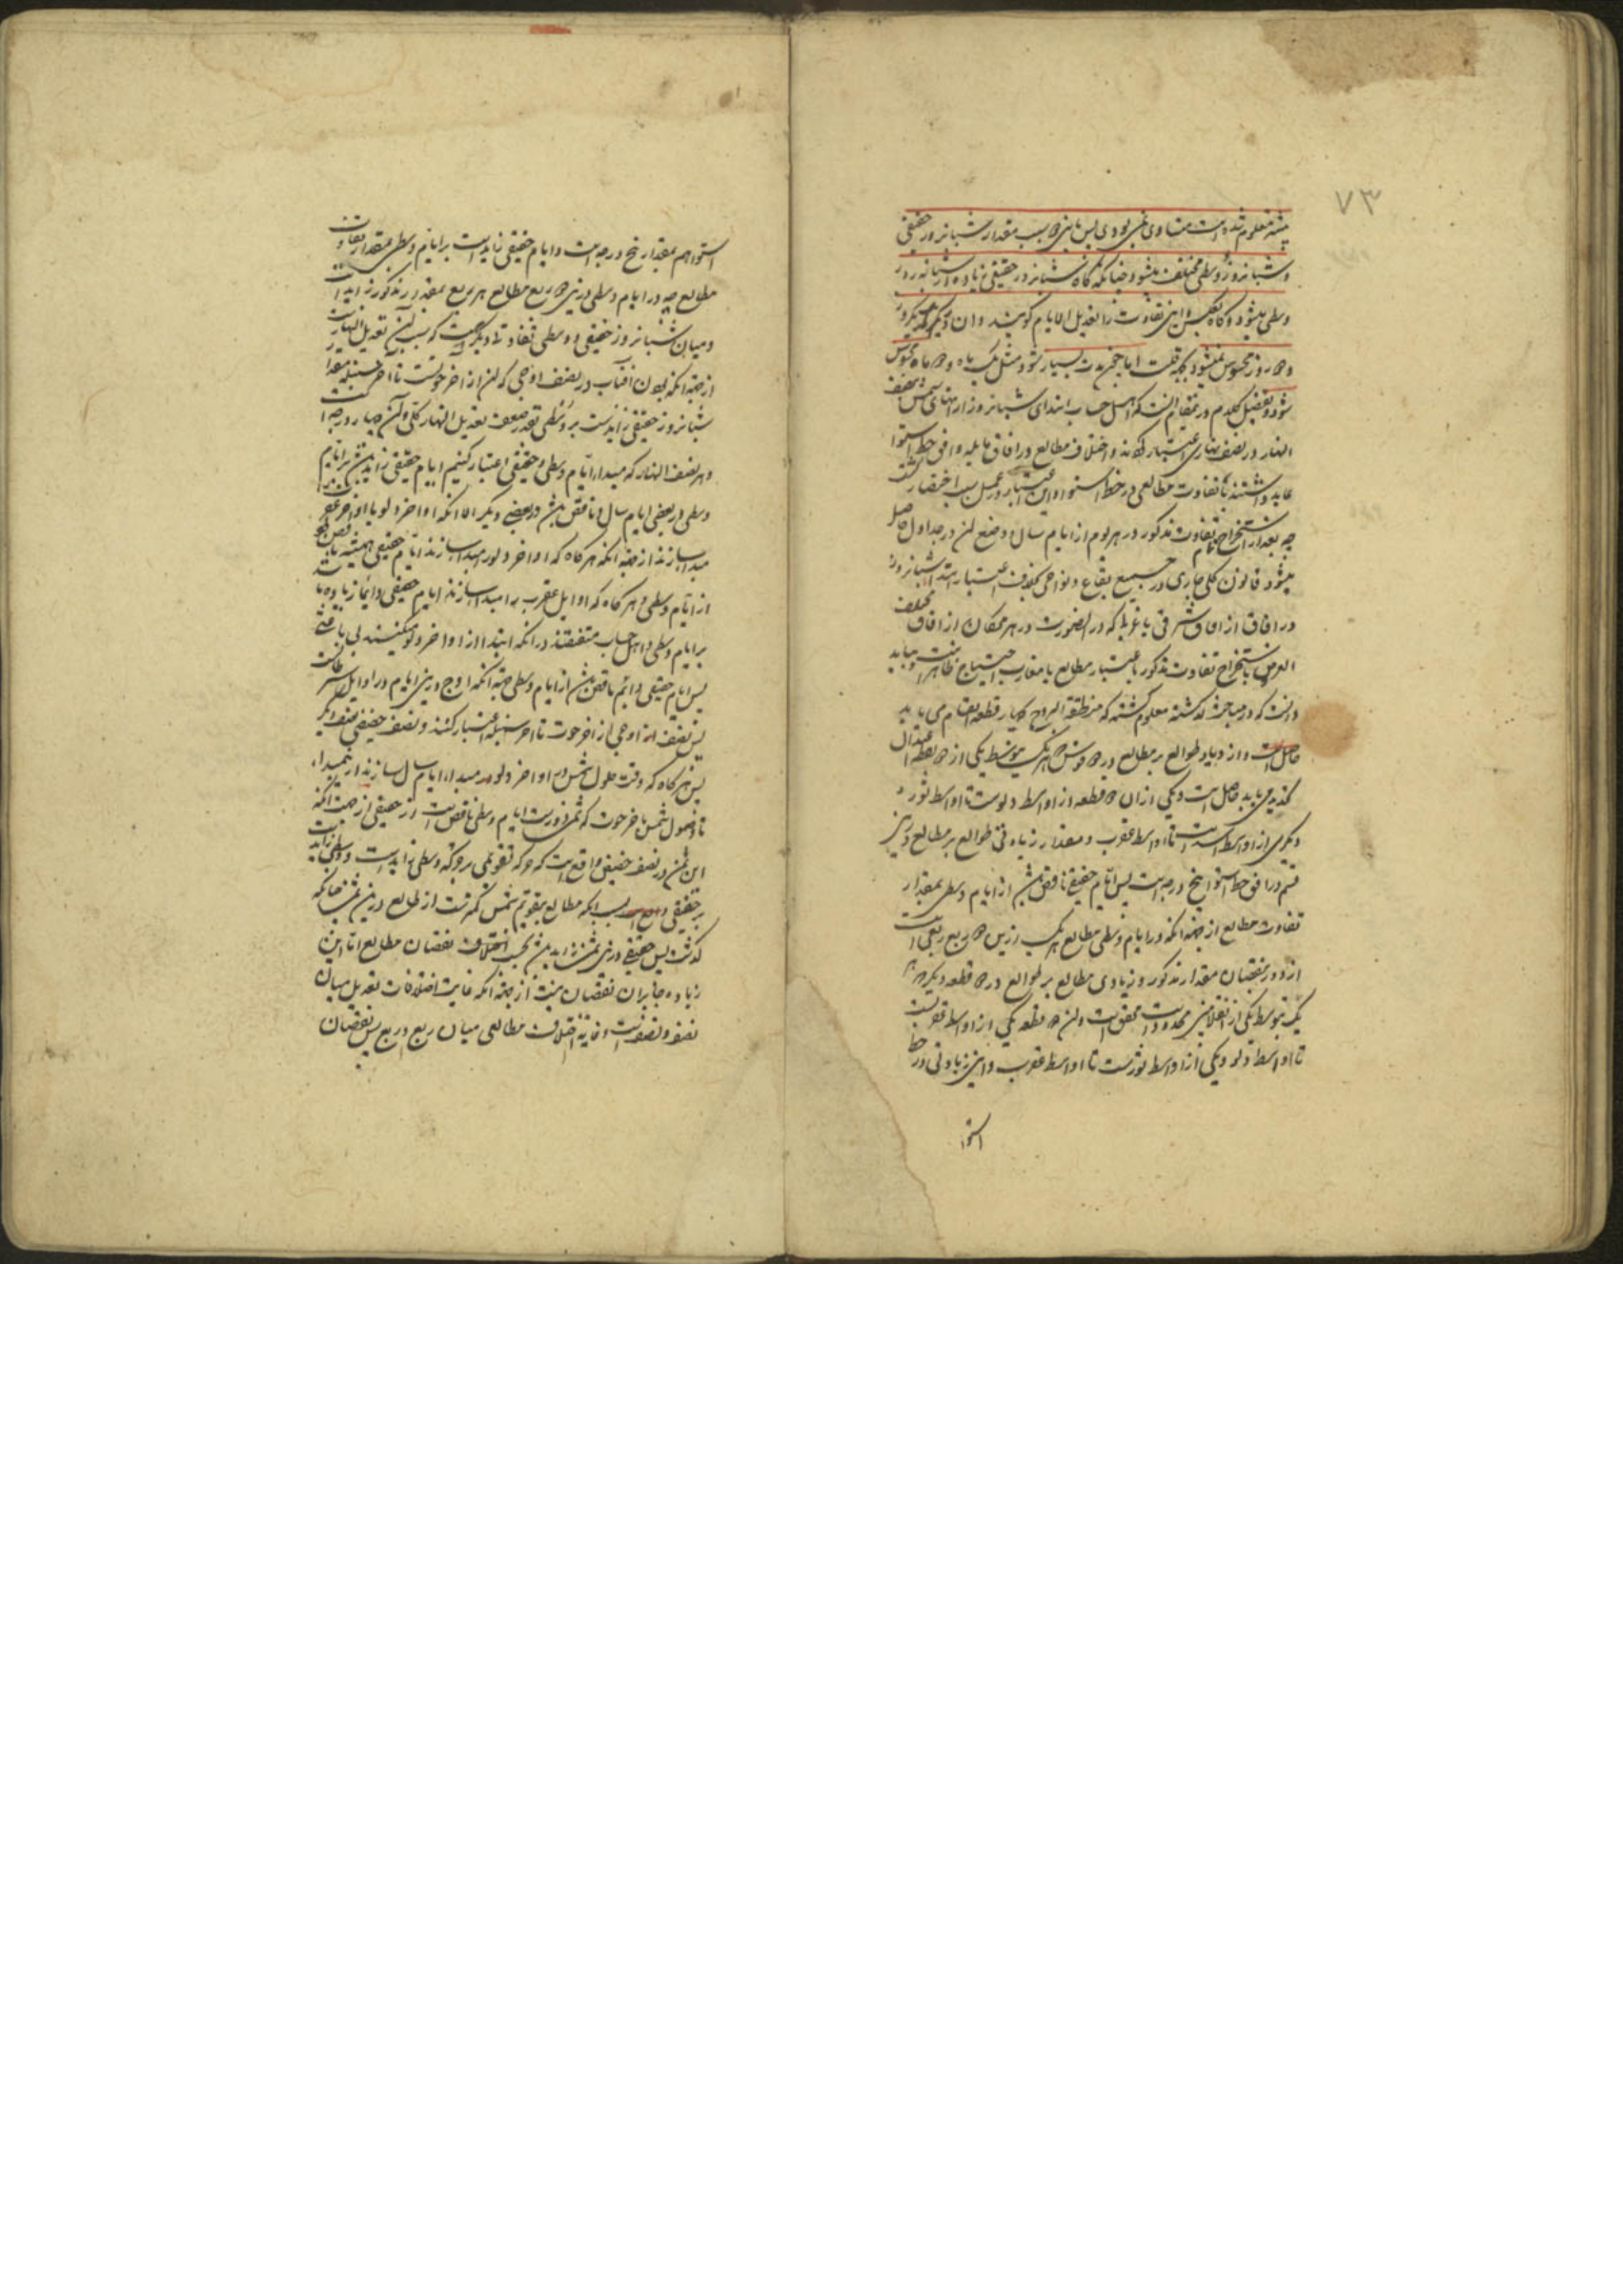 ۷۳
معلوم شده است متساوی نمی بودی پس باین دو سبب مقدار شبانروز حقیقی
و شبانروز وسطی مختلف میشود چنانکه گاه شبانروز حقیقی زیاده از شبانه روز
وسطی میشود و گاه بعکس و این تفاوت را تعدیل الایام گویند و ان در یکروز
و دو روز محسوس نمیشود بجهة قلت اما چون مدت بسیار شود مثل یک ماه و دو ماه محسوس
شود و تفصیل کلام درین مقام انست که اهل حساب ابتدای شبانروز از انتهای شمس بنصف
النهار در نصف نهاری اعتبار کرده اند و اختلاف مطالع در افاق مایله و افق خط استوا
عاید داشتند بتفاوت مطالعی در خط استوا و این اعتبار در عمل سبب اختصار
چه بعد از استخراج تفاوت مذکور در هر یوم از ایام سال و وضع ان در جداول حاصل
میشود قانون کلی جاری در جمیع بقاع و نواحی بخلاف اعتبار ابتداء شبانروز
در افاق از افاق شرقی یا غربی که در اینصورت در هر مکان از افاق مختلف
العرض باستخراج تفاوت مذکور باعتبار مطالع یا مغارب احتیاج ظاهر است و باید
دانست که در مباحث گذشته معلوم گشته که منطقة البروج بچهار قطعه انقسام می یابد
حاصل است و ازدیاد طوالع بر مطالع در دو قوس که هر یک بتوسط یکی از دو نقطه اعتدال
تحدید می یابد حاصل است و یکی از ان دو قطعه از اواسط دلوست تا اواسط ثور و
دیگری از اواسط اسد است تا اواسط عقرب و مقدار زیادتی طوالع بر مطالع درین
قسم در افق خط استوا پنج درجه است پس ایام حقیقی ناقص بیش از ایام وسطی بمقدار
تفاوت مطالع از جهة انکه در ایام وسطی مطالع هر یک ازین دو ربع ربعی است
از دور بنقصان مقدار مذکور و زیادی مطالع بر طوالع در دو قطعه دیگر که هر
یک بتوسط یکی از انقلابین محدود است محقق است و ان دو قطعه یکی از اواسط عقربست
تا اواسط دلو و یکی از اواسط ثورست تا اواسط عقرب و این زیادتی در خط
استوا
استوا هم بمقدار پنج درجه است و ایام حقیقی زایدست بر ایام وسطی بمقدار تفاوت
مطالع چه در ایام وسطی درین دو ربع مطالع هر ربع بمقدار مذکور زاید است
و میان شبانروز حقیقی و وسطی تفاوتی دیگر هست که بسبب ان تعدیل النهار
از جهة انکه بودن افتاب در نصف اوجی که ان از اخر حوتست تا اخر سنبله مقدار
شبانروز حقیقی زایدست بر وسطی بقدر ضعف تعدیل النهار کلی و ان چهار درجه
و هر نصف النهار که مبداء ایام وسطی و حقیقی اعتبار کنیم ایام حقیقی زاید بیش بر ایام
وسطی در بعضی ایام سال و ناقص بیش در بعضی دیگر الا انکه اواخر دلو یا اواخر عقرب
مبدا سازند از جهة انکه هر گاه که اواخر دلو را مبدا سازند ایام حقیقی همیشه ناقص
از ایام وسطی و هر گاه که اوایل عقرب را مبدا سازند ایام حقیقی دایما زیاده
بر ایام وسطی و اهل حساب متفقند در انکه ابتدا از اواخر دلو میکنند
پس ایام حقیقی دایم ناقص بیش از ایام وسطی جهة انکه اوج درین ایام در اوایل سرطانست
پس نصف اوجی از اخر حوت تا اخر سنبله اعتبار کنند و نصف حضیضی نصف دیگر
پس هر گاه که وقت حلول شمس در اواخر دلو مبداء ایام سال سازند از مبداء
تا وصول شمس باخر حوت که ثمن دورست ایام وسطی ناقص است از حقیقی از جهت انکه
این ثمن در نصف حضیضی واقع است که حرکه تقویمی بر حرکه وسطی زایدست
بر حقیقی بسبب انکه مطالع بتقویم شمس کمترست از طالع درین ثمن چنانکه
گذشت پس حقیقی درین ثمن زاید بیش بحسب اختلاف نقصان مطالع اما این
زیاده جابر ان نقصان نیست از جهة انکه غایت اختلافات تعدیل میان
نصف و نصفست و غایة اختلاف مطالعی میان ربع و ربع پس نقصان